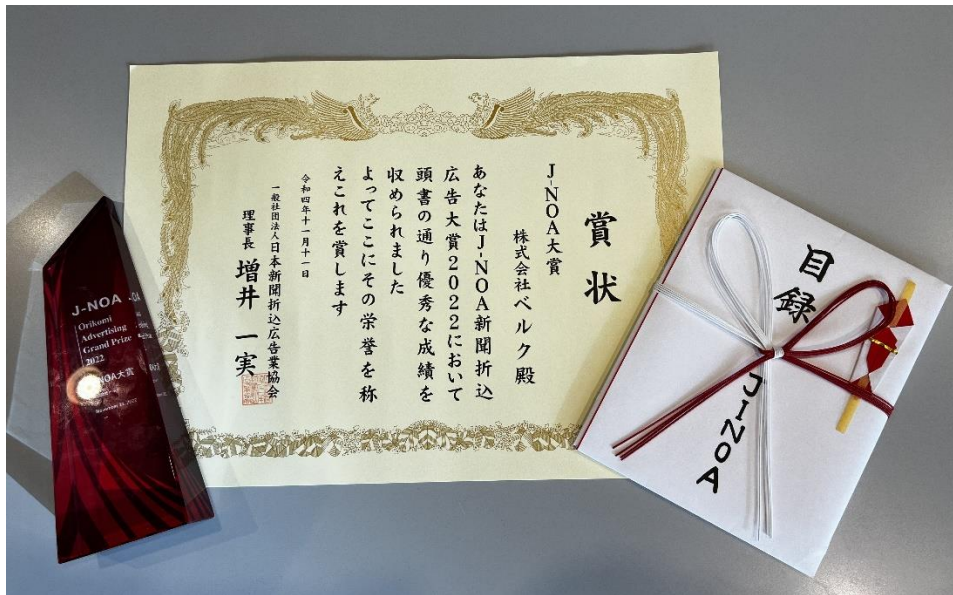 賞状
J-NOA大賞
株式会社ベルク殿
あなたはJ-NOA新聞折込
広告大賞2022において
頭書の通り優秀な成績を
収められました
よってここにその栄誉を称
えこれを賞します
令和四年十一月十一日
一般社団法人日本新聞折込広告業協会
理事長 増井一実
J-NOA
Orikomi
Advertising
Grand Prize
2022
NOA大賞
目録
JINOA